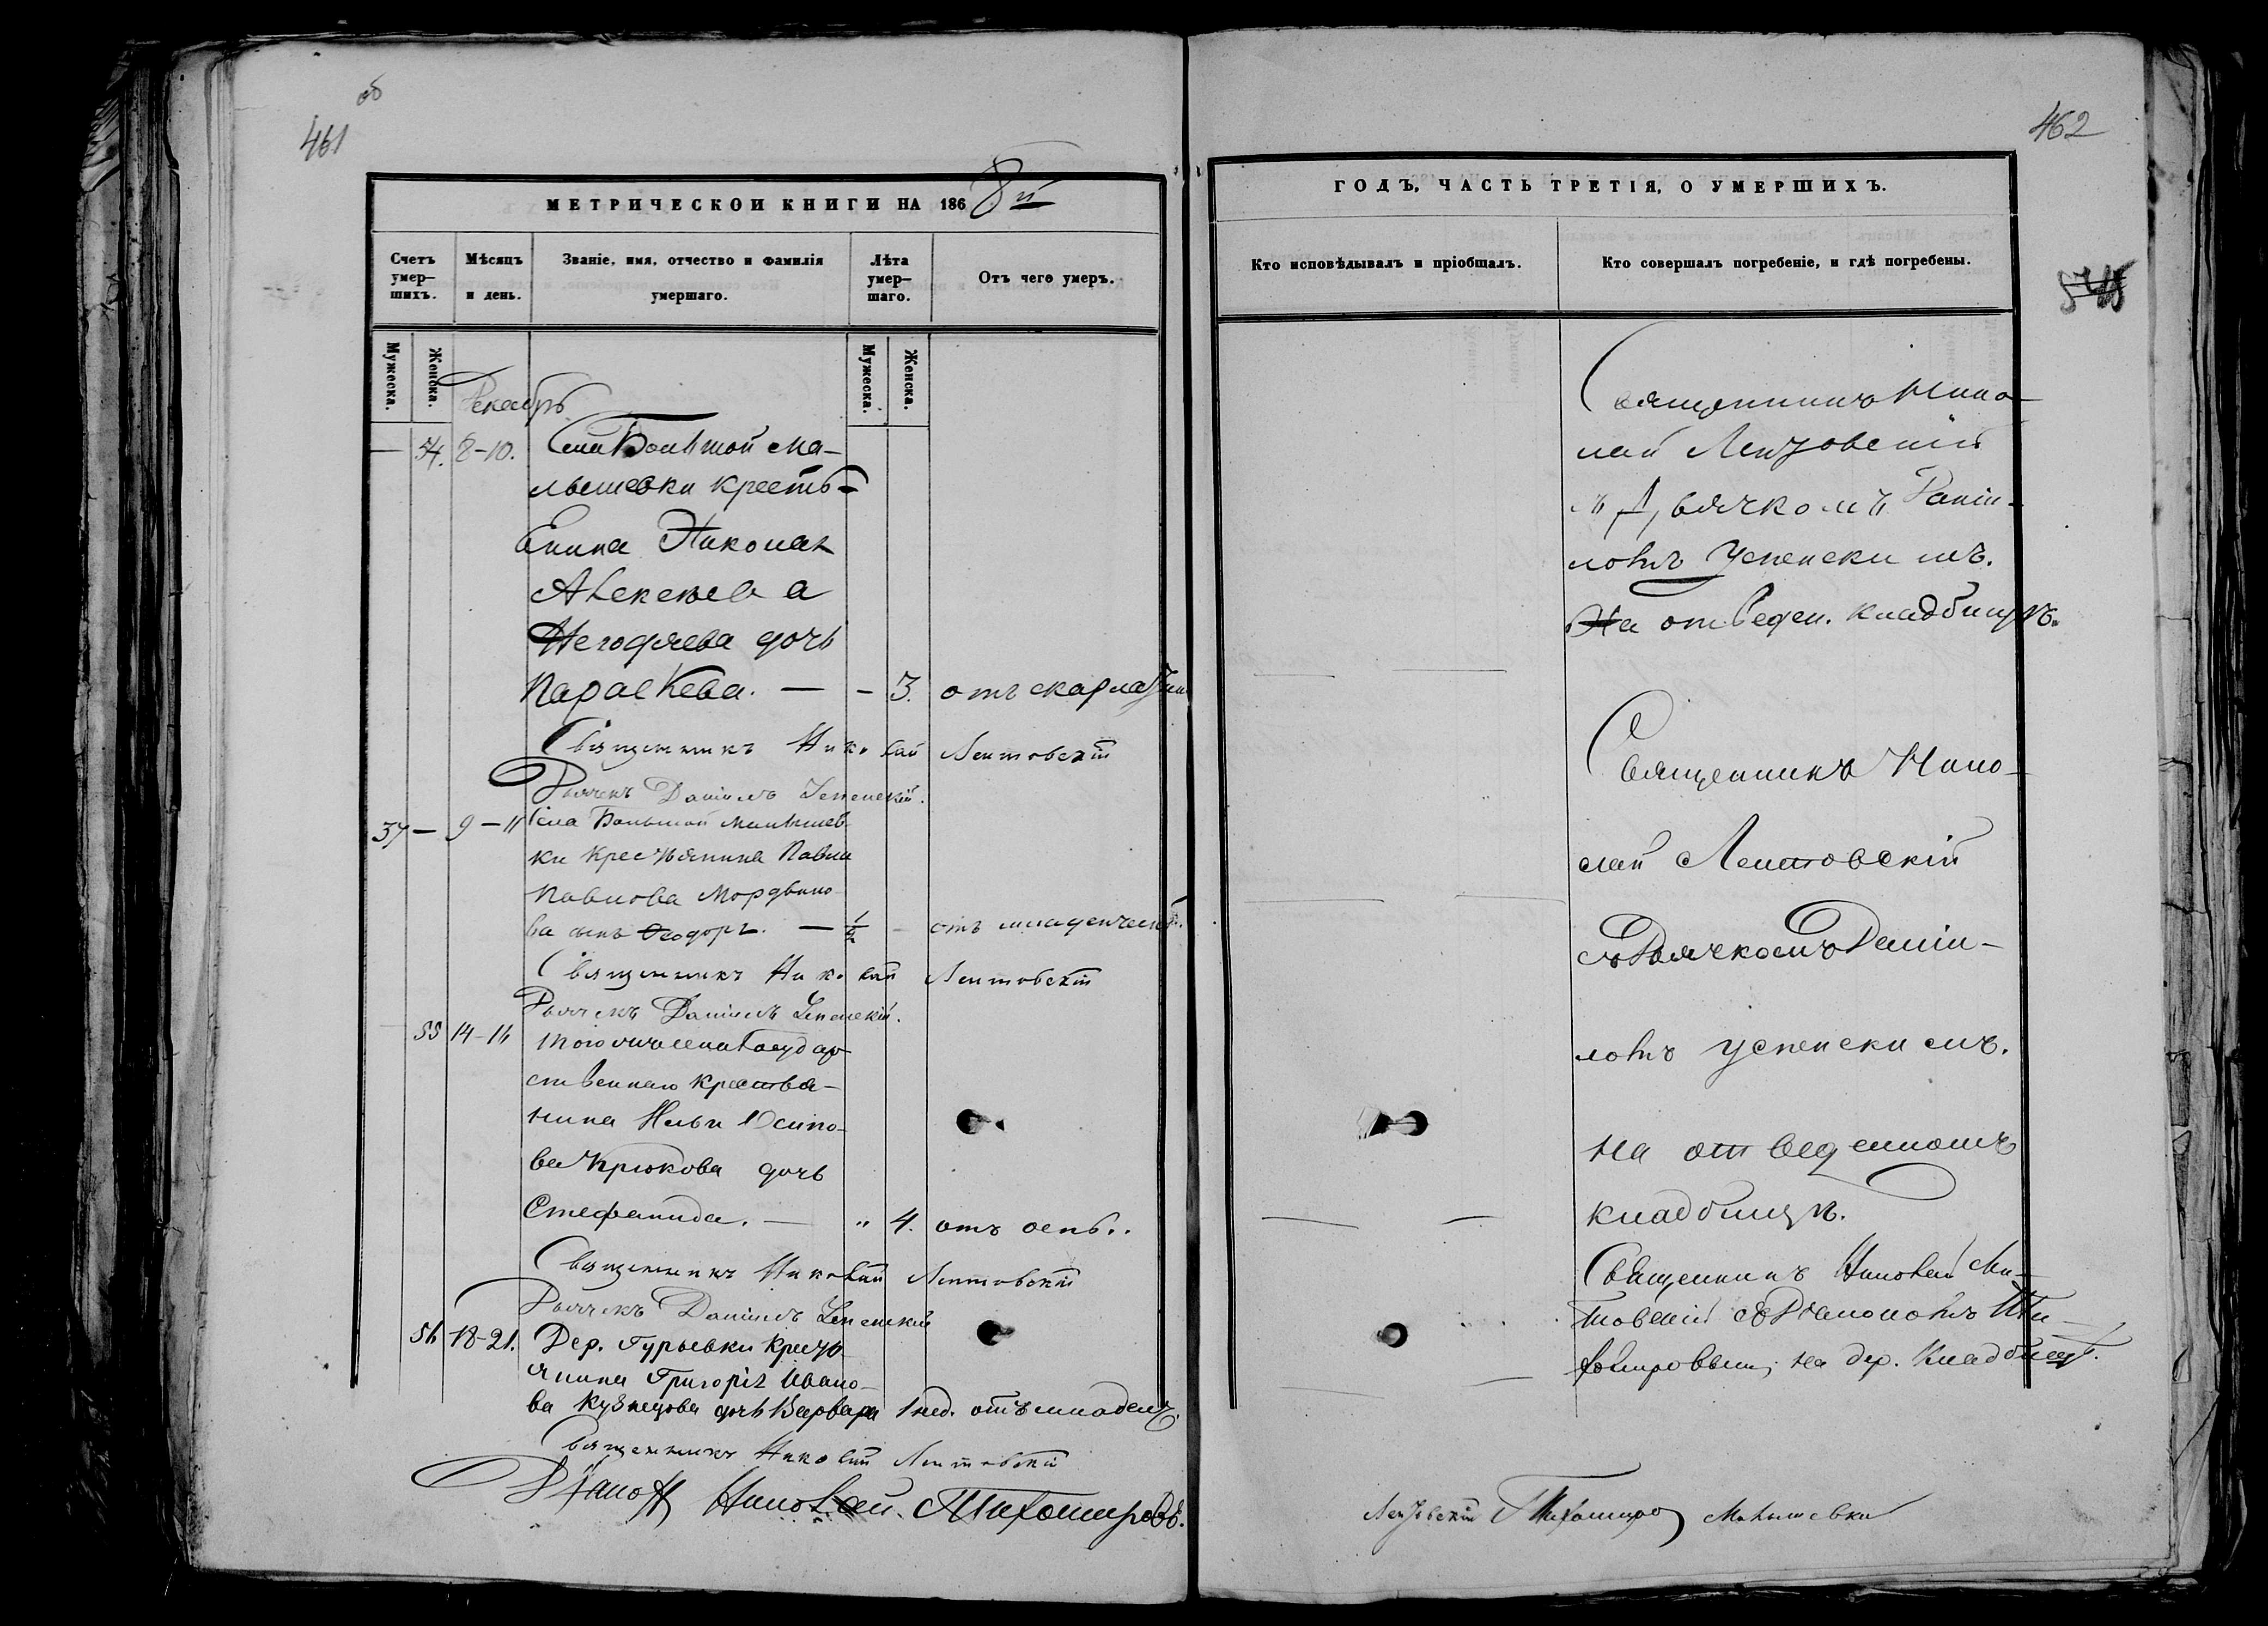 об
461
МЕТРИЧЕСКОЙ КНИГИ НА 1868й
Счетъ умер-
шихъ.
Мѣсяцъ
и день.
Званіе, имя, отчество и фамилія
умершаго.
Лѣта
умер-
шаго.
Отъ чего умеръ.
Мужеска.
Женска.
Мужеска.
Женска.
Декабрь
— 54. 8-10. Села Большой Ма-
лышевки кресть-
янина Николая
Алексѣева
Негодяева дочь
Параскева. — - 3. отъ скарлатин
Священникъ Николай Лентовскій
Дьячекъ Даніилъ Успенскій.
37 — 9-11 Села Большой Малышев-
ки крестьянина Павла
Павлова Мордвино-
ва сынъ Ѳеодоръ. — 1/2 - отъ младенческ.
Священникъ Николай Лентовскій
Дьячекъ Даніилъ Успенскій.
55 14-16 Того же села Государ-
ственнаго крестья-
нина Ильи Осипо-
ва Крюкова дочь
Стефанида. — " 4. отъ оспы.
Священникъ Николай Лентовскій
Дьячекъ Даніилъ Успенскій
56 18-21. Дер. Гурьевки кресть-
янина Григорія Ивано-
ва Кузнецова дочь Варвара 1 нед. отъ младенч.
Священникъ Николай Лентовскій
Діаконъ Николай Тихомировъ.
462
ГОДЪ, ЧАСТЬ ТРЕТІЯ, О УМЕРШИХЪ.
Кто исповѣдывалъ и пріобщалъ.
Кто совершалъ погребеніе, и гдѣ погребены.
Священникъ Нико-
лай Лентовскій
съ Дьячкомъ Даніи-
ломъ Успенскимъ.
На отведен. кладбищѣ.
Священникъ Нико-
лай Лентовскій
съ Дьячкомъ Даніи-
ломъ Успенскимъ.
На отведенномъ
кладбищѣ.
Священникъ Николай Лен-
товскій съ Діакономъ Ти-
хомировымъ, на дер. кладбищѣ.
Лентовскій Тихомиро Малышевки